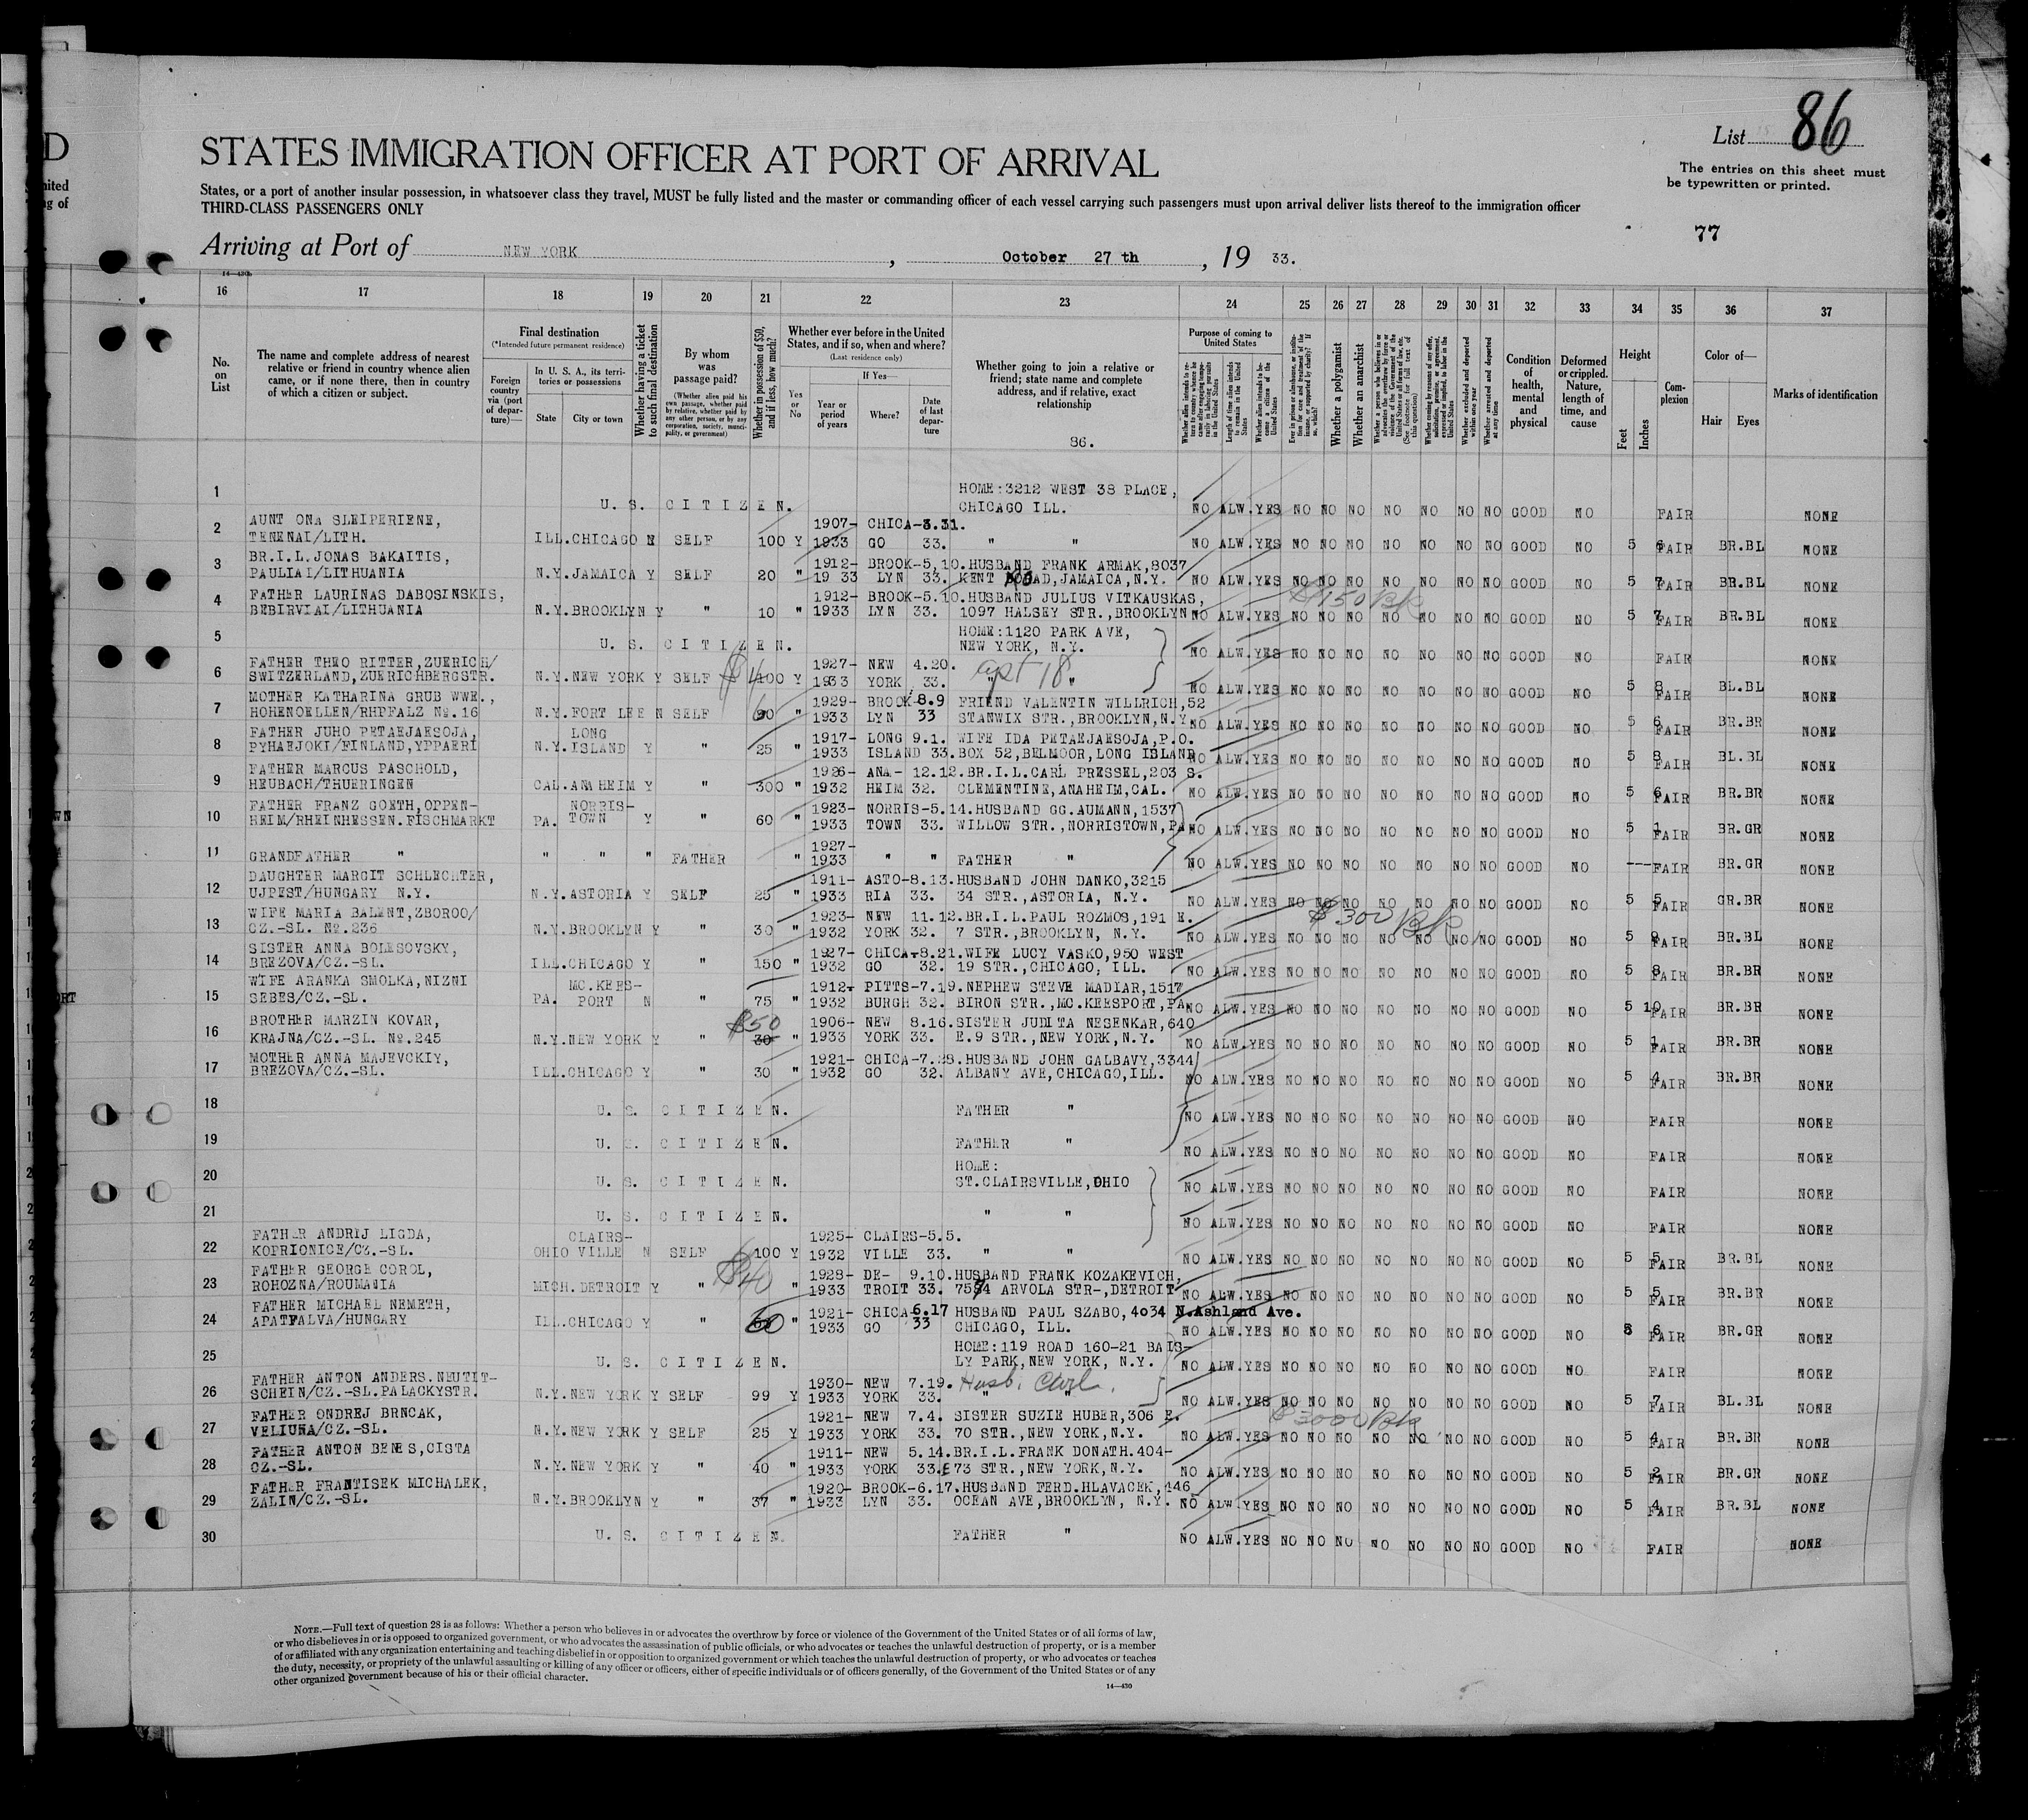 D
nited
ng of
List 86
STATES IMMIGRATION OFFICER AT PORT OF ARRIVAL
The entries on this sheet must
be typewritten or printed.
States, or a port of another insular possession, in whatsoever class they travel, MUST be fully listed and the master or commanding officer of each vessel carrying such passengers must upon arrival deliver lists thereof to the immigration officer
THIRD-CLASS PASSENGERS ONLY
77
Arriving at Port of NEW YORK, October 27 th, 19 33.
16 17 18 19 20 21 22 23 24 25 26 27 28 29 30 31 32 33 34 35 36 37
No. on List
The name and complete address of nearest
relative or friend in country whence alien
came, or if none there, then in country
of which a citizen or subject.
Final destination
(*Intended future permanent residence)
Foreign country via (port of departure)—
In U. S. A., its territories or possessions
State City or town
Whether having a ticket to such final destination
By whom was passage paid?
(Whether alien paid his own passage, whether paid by relative, whether paid by any other person, or by any corporation, society, municipality, or government)
Whether in possession of $50, and if less, how much?
Whether ever before in the United
States, and if so, when and where?
(Last residence only)
Yes or No
If Yes—
Year or period of years Where? Date of last departure
Whether going to join a relative or
friend; state name and complete
address, and if relative, exact
relationship
86.
Purpose of coming to United States
Whether alien intends to return to country whence he came after engaging temporarily in laboring pursuits in the United States
Length of time alien intends to remain in the United States
Whether alien intends to become a citizen of the United States
Ever in prison or almshouse, or institution for care and treatment of the insane, or supported by charity? If so, which?
Whether a polygamist
Whether an anarchist
Whether excluded and deported within one year
Whether arrested and deported at any time
Condition of health, mental and physical
Deformed or crippled. Nature, length of time, and cause
Height
Feet Inches
Complexion
Color of—
Hair Eyes
Marks of identification
1 U. S. CITIZEN. HOME:3212 WEST 38 PLACE,
CHICAGO ILL. NO ALW.YES NO NO NO NO NO NO NO GOOD NO FAIR NONE
2 AUNT ONA SLEIPERIENE, 1907- CHICA-3.31.
TENENAI/LITH. ILL.CHICAGO N SELF 100 Y 1933 GO 33. " " NO ALW.YES NO NO NO NO NO NO NO GOOD NO 5 6 FAIR BR.BL NONE
3 BR.I.L.JONAS BAKAITIS, 1912- BROOK-5,10.HUSBAND FRANK ARMAK,8037
PAULIAI/LITHUANIA N.Y.JAMAICA Y SELF 20 " 19 33 LYN 33. KENT ROAD,JAMAICA,N.Y. NO ALW.YES NO NO NO NO NO NO NO GOOD NO 5 7 FAIR BR.BL NONE
$150 Bk
4 FATHER LAURINAS DABOSINSKIS, 1912- BROOK-5.10.HUSBAND JULIUS VITKAUSKAS,
BEBIRVIAI/LITHUANIA N.Y.BROOKLYN Y " 10 " 1933 LYN 33. 1097 HALSEY STR.,BROOKLYN NO ALW.YES NO NO NO NO NO NO NO GOOD NO 5 7 FAIR BR.BL NONE
5 U. S. CITIZEN. HOME:1120 PARK AVE,
NEW YORK, N.Y. NO ALW.YES NO NO NO NO NO NO NO GOOD NO FAIR NONE
6 FATHER THEO RITTER,ZUERICH/ 1927- NEW 4.20. apt 18
SWITZERLAND,ZUERICHBERGSTR. N.Y.NEW YORK Y SELF 100 Y 1933 YORK 33. " " NO ALW.YES NO NO NO NO NO NO NO GOOD NO 5 8 FAIR BL.BL NONE
7 MOTHER KATHARINA GRUB WWE., 1929- BROOK-8.9 FRIEND VALENTIN WILLRICH,52
HOHENOELLEN/RHPFALZ No.16 N.Y.FORT LEE N SELF " 1933 LYN 33 STANWIX STR.,BROOKLYN,N.Y. NO ALW.YES NO NO NO NO NO NO NO GOOD NO 5 6 FAIR BR.BR NONE
8 FATHER JUHO PETAEJAESOJA, LONG 1917- LONG 9.1. WIFE IDA PETAEJAESOJA,P.O.
PYHAEJOKI/FINLAND,YPPAERI N.Y.ISLAND Y " 25 " 1933 ISLAND 33.BOX 52,BELMOOR,LONG ISLAND NO ALW.YES NO NO NO NO NO NO NO GOOD NO 5 8 FAIR BL.BL NONE
9 FATHER MARCUS PASCHOLD, 1926- ANA- 12.12.BR.I.L.CARL PRESSEL,203 S.
HEUBACH/THUERINGEN CAL.ANAHEIM Y " 300 " 1932 HEIM 32. CLEMENTINE,ANAHEIM,CAL. NO ALW.YES NO NO NO NO NO NO NO GOOD NO 5 6 FAIR BR.BR NONE
10 FATHER FRANZ GOETH,OPPEN- NORRIS- 1923- NORRIS-5.14.HUSBAND GG.AUMANN,1537
HEIM/RHEINHESSEN.FISCHMARKT PA. TOWN Y " 60 " 1933 TOWN 33. WILLOW STR.,NORRISTOWN,PA NO ALW.YES NO NO NO NO NO NO NO GOOD NO 5 1 FAIR BR.GR NONE
11 1927-
GRANDFATHER " " " " FATHER " 1933 " " FATHER " NO ALW.YES NO NO NO NO NO NO NO GOOD NO --- FAIR BR.GR NONE
12 DAUGHTER MARGIT SCHLECHTER, 1911- ASTO-8.13.HUSBAND JOHN DANKO,3215
UJPEST/HUNGARY N.Y. N.Y.ASTORIA Y SELF 25 " 1933 RIA 33. 34 STR.,ASTORIA, N.Y. NO ALW.YES NO NO NO NO NO NO NO GOOD NO 5 5 FAIR GR.BR NONE
$300 Bk
13 WIFE MARIA BALENT,ZBOROO/ 1923- NEW 11.12.BR.I.L.PAUL ROZMOS,191 E.
CZ.-SL. No.236 N.Y.BROOKLYN Y " 30 " 1932 YORK 32. 7 STR.,BROOKLYN, N.Y. NO ALW.YES NO NO NO NO NO NO NO GOOD NO 5 9 FAIR BR.BL NONE
14 SISTER ANNA BOLESOVSKY, 1927- CHICA-8.21.WIFE LUCY VASKO,950 WEST
BREZOVA/CZ.-SL. ILL.CHICAGO Y " 150 " 1932 GO 32. 19 STR.,CHICAGO, ILL. NO ALW.YES NO NO NO NO NO NO NO GOOD NO 5 8 FAIR BR.BR NONE
15 WIFE ARANKA SMOLKA,NIZNI MC.KEES- 1912- PITTS-7.19.NEPHEW STEVE MADIAR,1517
SEBES/CZ.-SL. PA. PORT N " 75 " 1932 BURGH 32. BIRON STR.,MC.KEESPORT,PA. NO ALW.YES NO NO NO NO NO NO NO GOOD NO 5 10 FAIR BR.BR NONE
16 BROTHER MARZIN KOVAR, $50 1906- NEW 8.16.SISTER JUDITA NESENKAR,640
KRAJNA/CZ.-SL. No.245 N.Y.NEW YORK Y " 30 " 1933 YORK 33. E.9 STR.,NEW YORK,N.Y. NO ALW.YES NO NO NO NO NO NO NO GOOD NO 5 1 FAIR BR.BR NONE
17 MOTHER ANNA MAJEVCKIY, 1921- CHICA-7.28.HUSBAND JOHN GALBAVY,3344
BREZOVA/CZ.-SL. ILL.CHICAGO Y " 30 " 1932 GO 32. ALBANY AVE,CHICAGO,ILL. NO ALW.YES NO NO NO NO NO NO NO GOOD NO 5 4 FAIR BR.BR NONE
18 U. S. CITIZEN. FATHER " NO ALW.YES NO NO NO NO NO NO NO GOOD NO FAIR NONE
19 U. S. CITIZEN. FATHER " NO ALW.YES NO NO NO NO NO NO NO GOOD NO FAIR NONE
20 HOME:
U. S. CITIZEN. ST.CLAIRSVILLE,OHIO NO ALW.YES NO NO NO NO NO NO NO GOOD NO FAIR NONE
21 U. S. CITIZEN. " " NO ALW.YES NO NO NO NO NO NO NO GOOD NO FAIR NONE
22 FATHER ANDRIJ LIGDA, CLAIRS- 1925- CLAIRS-5.5.
KOPRIONICE/CZ.-SL. OHIO VILLE N SELF 100 Y 1932 VILLE 33. " " NO ALW.YES NO NO NO NO NO NO NO GOOD NO 5 5 FAIR BR.BL NONE
23 FATHER GEORGE COROL, $40 1928- DE- 9.10.HUSBAND FRANK KOZAKEVICH,
ROHOZNA/ROUMANIA MICH.DETROIT Y " " 1933 TROIT 33. 7574 ARVOLA STR-,DETROIT NO ALW.YES NO NO NO NO NO NO NO GOOD NO 5 5 FAIR BR.BR NONE
24 FATHER MICHAEL NEMETH, 1921- CHICA 6.17 HUSBAND PAUL SZABO,4034 N.Ashland Ave.
APATFALVA/HUNGARY ILL.CHICAGO Y " 60 " 1933 GO 33 CHICAGO, ILL. NO ALW.YES NO NO NO NO NO NO NO GOOD NO 5 6 FAIR BR.GR NONE
25 HOME:119 ROAD 160-21 BAIS-
U. S. CITIZEN. LY PARK,NEW YORK, N.Y. NO ALW.YES NO NO NO NO NO NO NO GOOD NO FAIR NONE
26 FATHER ANTON ANDERS.NEUTIT- 1930- NEW 7.19. Husb.
SCHEIN/CZ.-SL.PALACKYSTR. N.Y.NEW YORK Y SELF 99 Y 1933 YORK 33. " " NO ALW.YES NO NO NO NO NO NO NO GOOD NO 5 7 FAIR BL.BL NONE
$3000 Bk
27 FATHER ONDREJ BRNCAK, 1921- NEW 7.4. SISTER SUZIE HUBER,306 E.
VELIUNA/CZ.-SL. N.Y.NEW YORK Y SELF 25 Y 1933 YORK 33. 70 STR.,NEW YORK,N.Y. NO ALW.YES NO NO NO NO NO NO NO GOOD NO 5 4 FAIR BR.BR NONE
28 FATHER ANTON BENES,CISTA 1911- NEW 5.14.BR.I.L.FRANK DONATH.404-
CZ.-SL. N.Y.NEW YORK Y " 40 " 1933 YORK 33.E 73 STR.,NEW YORK,N.Y. NO ALW.YES NO NO NO NO NO NO NO GOOD NO 5 2 FAIR BR.GR NONE
29 FATHER FRANTISEK MICHALEK, 1920- BROOK-6.17.HUSBAND FERD.HLAVACEK,446
ZALIN/CZ.-SL. N.Y.BROOKLYN Y " 37 " 1933 LYN 33. OCEAN AVE,BROOKLYN, N.Y. NO ALW.YES NO NO NO NO NO NO NO GOOD NO 5 4 FAIR BR.BL NONE
30 U. S. CITIZEN. FATHER " NO ALW.YES NO NO NO NO NO NO NO GOOD NO FAIR NONE
NOTE.—Full text of question 28 is as follows: Whether a person who believes in or advocates the overthrow by force or violence of the Government of the United States or of all forms of law,
or who disbelieves in or is opposed to organized government, or who advocates the assassination of public officials, or who advocates or teaches the unlawful destruction of property, or is a member
of or affiliated with any organization entertaining and teaching disbelief in or opposition to organized government or which teaches the unlawful destruction of property, or who advocates or teaches
the duty, necessity, or propriety of the unlawful assaulting or killing of any officer or officers, either of specific individuals or of officers generally, of the Government of the United States or of any
other organized government because of his or their official character.
14—430